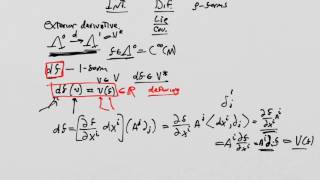 Int. Dif p-forms
Lie
Cov.
Exterior derivative
Λ⁰ →d Λ¹ = V*
f ∈ Λ⁰ = C^∞(M)
df - 1-form
v ∈ V df ∈ V*
df(v) = v(f) ∈ ℝ defining
δ_j^i
df = [∂f/∂x^i dx^i] (A^j ∂_j) = ∂f/∂x^i A^j ⟨dx^i, ∂_j⟩ = ∂f/∂x^i A^i
= A^i ∂f/∂x^i = A^i ∂_i f = v(f)